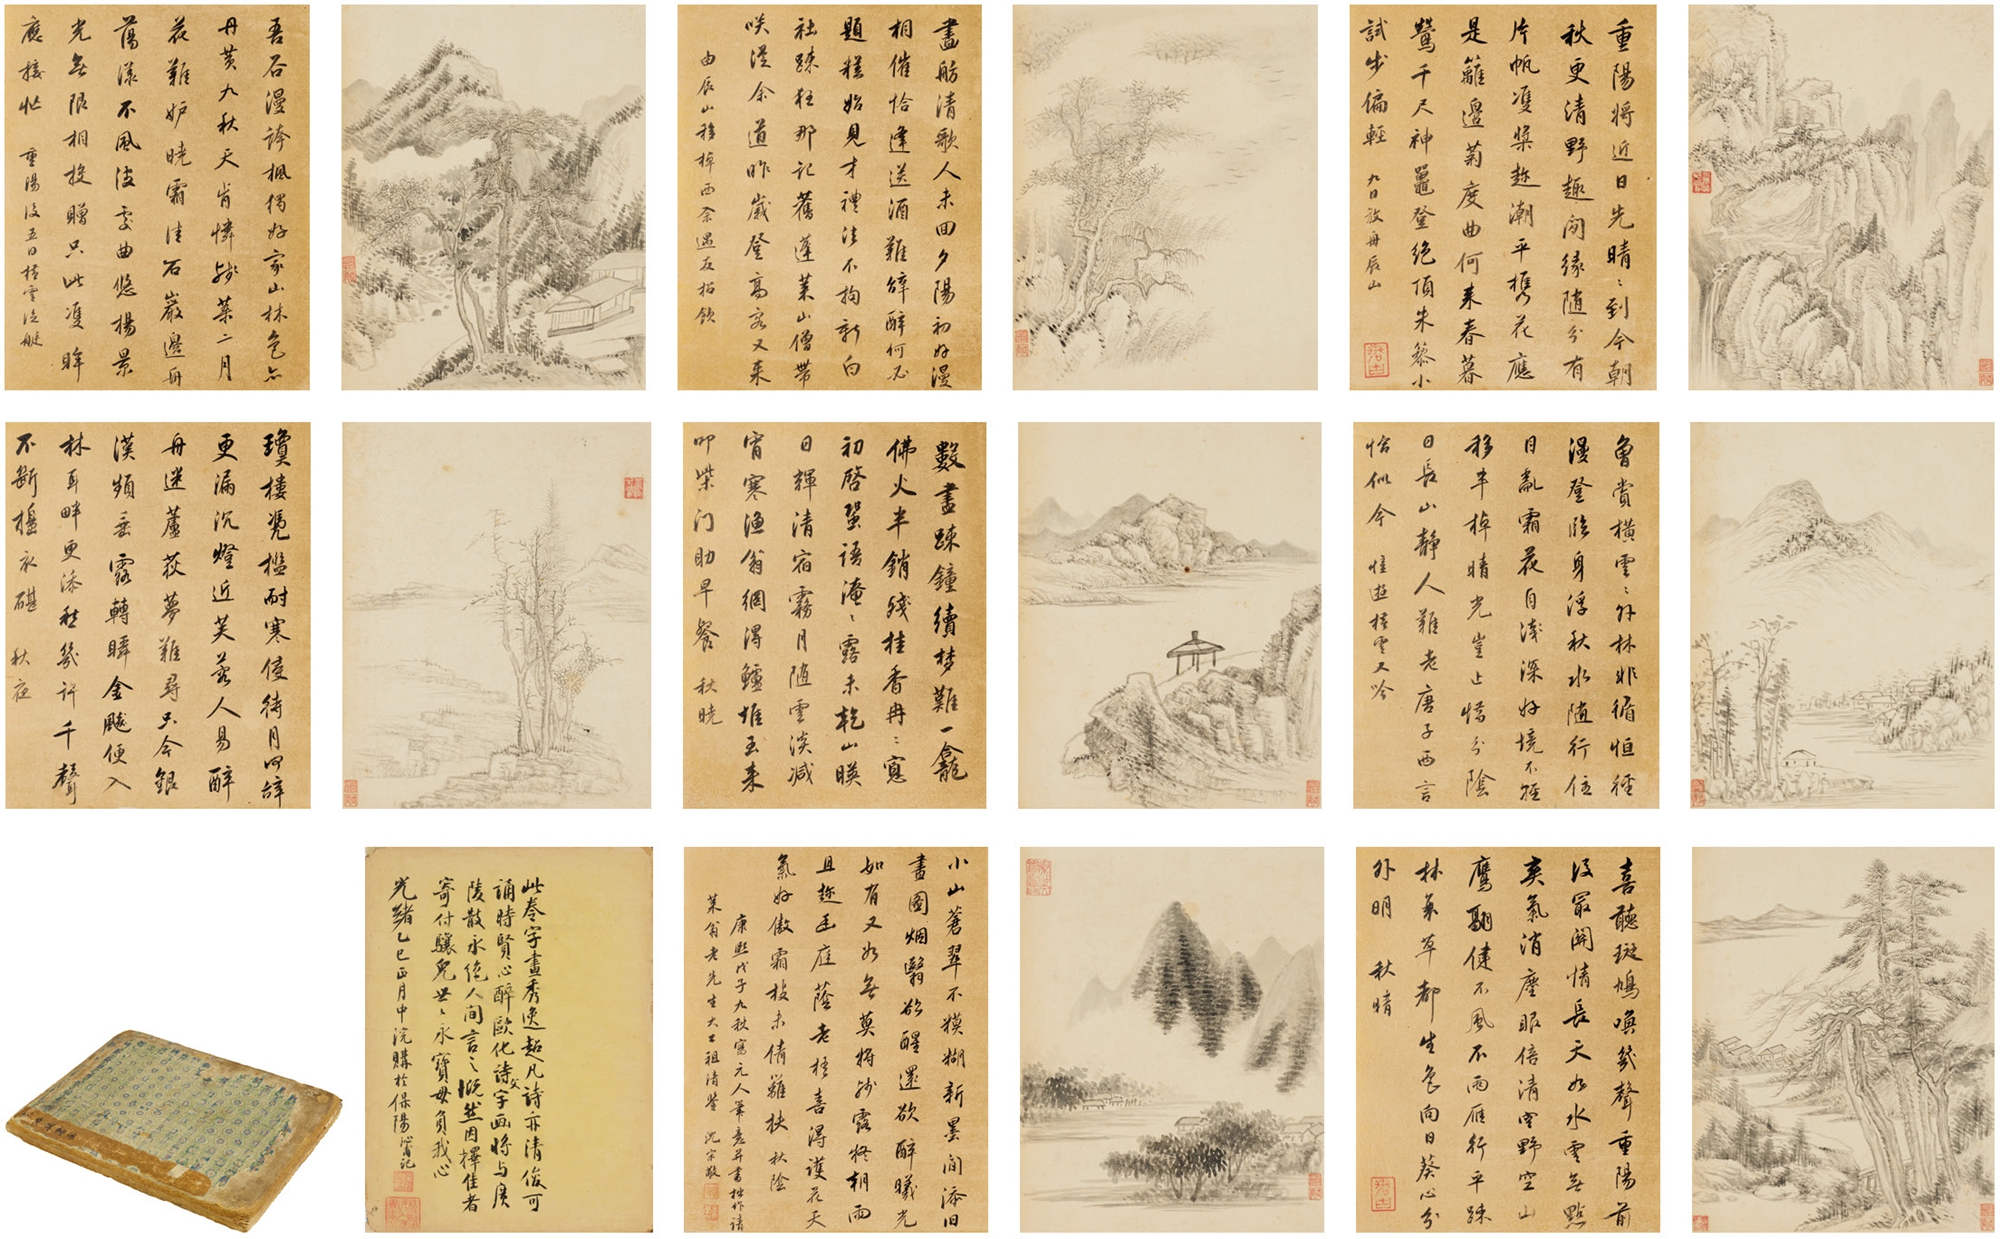 重陽將近日先晴〻到今朝
秋更清野趣閒緣隨分有
片帆雙槳趁潮平攜花應
是籬邊菊度曲何來春暮
鶯千尺神鼉登絕頂朱藜小
試步偏輕 九日放舟辰山
畫舫清歌人未回夕陽初好漫
相催恰逢送酒難辭醉何必
題糕始見才禮法不拘新白
社疎狂那記舊蓬萊山僧帶
咲余道昨歲登高客又來
由辰山移棹西佘遇友招飲
吾谷漫誇楓獨好家山林色亦
丹黃九秋天肯憐殘葉二月
花難妒曉霜佳石巖邊舟
蕩漾不風波處曲悠揚景
光無限相投贈只此雙眸
應接忙 重陽後五日橫雲泛艇
曾賞橫雲〻外林非循恒徑
漫登臨身浮秋水隨行住
目亂霜花自淺深好境不經
移半棹晴光豈止惜分陰
日長山靜人難老唐子西言
恰似今 遊橫雲又吟
數盡疎鐘續夢難一龕
佛火半銷殘桂香冉〻窓
初啓蛩語淹〻露未乾山暎
日輝清宿霧月隨雲淡減
宵寒漁翁網得鱸堆玉來
叩柴門助早餐 秋曉
瓊樓凭檻耐寒侵待月何辭
更漏沉燈近芙蓉人易醉
舟迷蘆荻夢難尋只今銀
漢頻垂露轉瞬金飈便入
林耳畔更添愁幾許千聲
不斷搗衣碪 秋夜
喜聽斑鳩喚幾聲重陽前
後最關情長天如水雲無點
爽氣消塵眼倍清四野空山
鷹翮健不風不雨雁行平疎
林衰草都生色向日葵心分
外明 秋晴
小山蒼翠不糢糊新墨間添旧
畫圖烟翳欲醒還欲醉曦光
如有又如無莫將殘露疑朝雨
且趁玉庭蔭老梧喜得護花天
氣好傲霜枝未倩籬扶 秋陰
康熙戊子九秋寫元人筆意并書拙作請
菉翁老先生大士祖清鑒 沈宗敬
此卷字畫秀逸超凡詩亦清俊可
誦時賢心醉歐化詩文字画將與廣
陵散永絕人間言之慨然因擇佳者
寄付驤兒世〻永寶毋負我心
光緒乙巳正月中浣購於保陽記